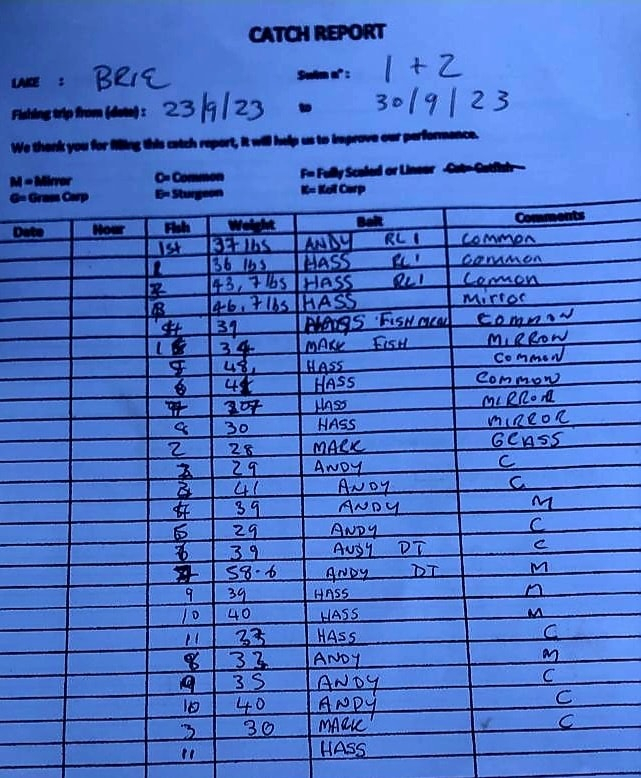 CATCH REPORT
LAKE : BRIE Swim n°: 1 + 2
Fishing trip from (date): 23/9/23 to 30/9/23
We thank you for filling this catch report, it will help us to improve our performance.
M = Mirror C= Common F= Fully Scaled or Linear Cat= Catfish
G= Grass Carp E= Sturgeon K= Koi Carp
Date Hour Fish Weight Bait Comments
1st 37 lbs ANDY RL1 common
36 lbs HASS RL1 common
43,7lbs HASS RL1 Common
46,7lbs HASS Mirror
39 FISHMEAL COMMON
1 34 MARK FISH MIRROW
48, HASS common
6 HASS Common
HASS MIRROR
9 30 HASS MIRROR
2 28 MARK GRASS
29 ANDY C
3 41 ANDY C
39 ANDY M
5 29 ANDY C
39 ANDY DT C
58.6 ANDY DT M
9 39 HASS M
10 40 HASS M
11 33 HASS C
8 33 ANDY M
9 35 ANDY C
10 40 ANDY C
3 30 MARK C
11 HASS